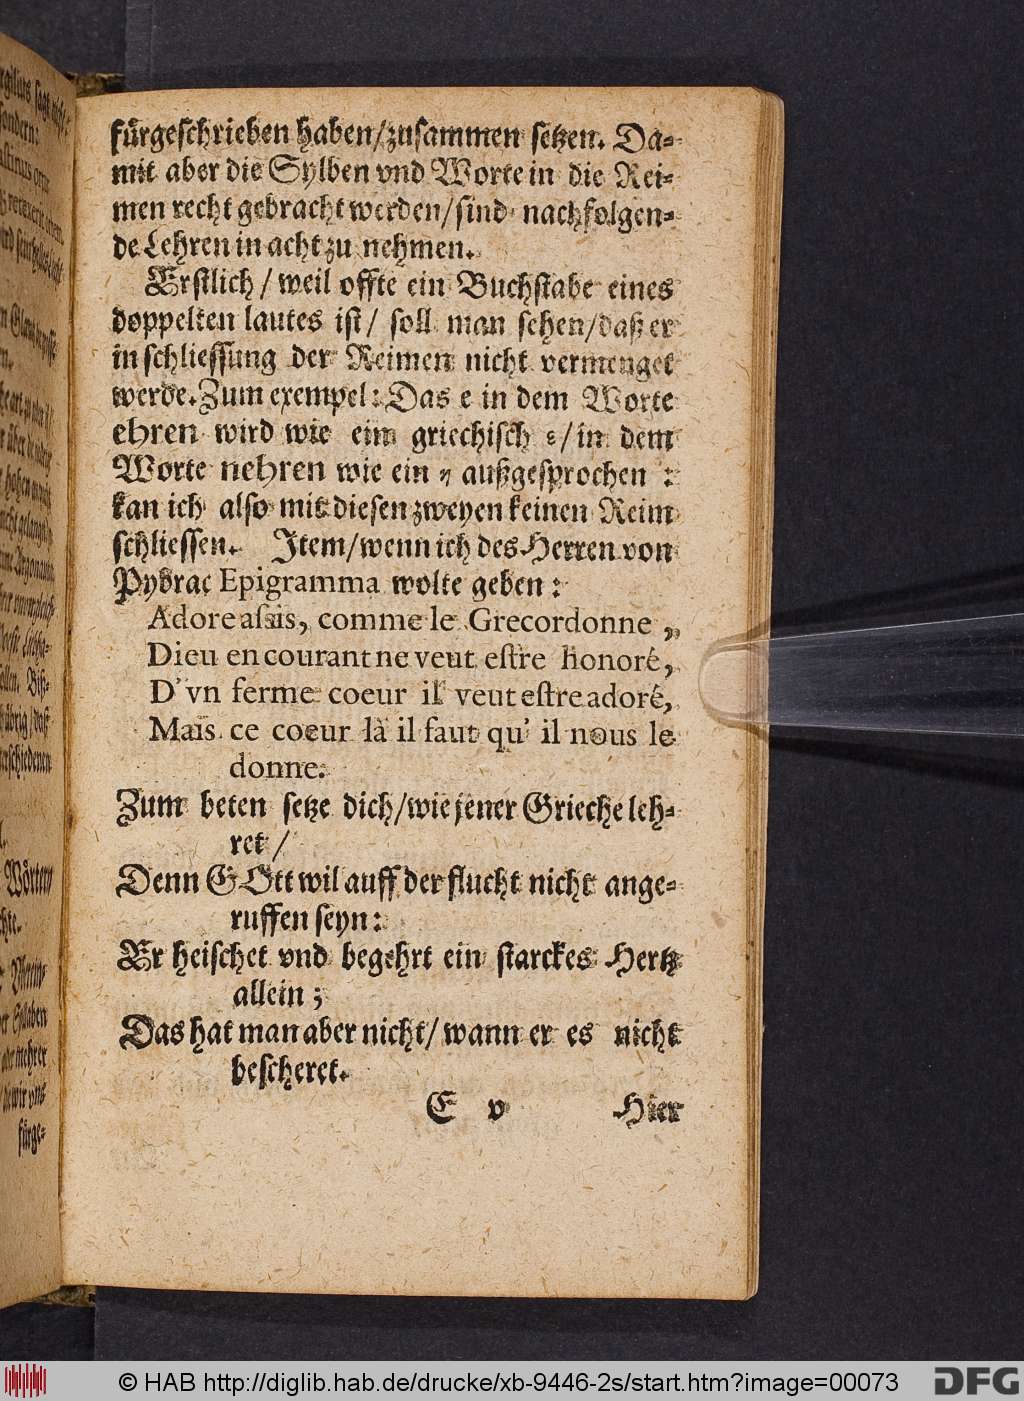 fürgeschrieben haben/zusammen setzen. Da-
mit aber die Sylben vnd Worte in die Rei-
men recht gebracht werden/sind nachfolgen-
de Lehren in acht zu nehmen.
Erstlich/ weil offte ein Buchstabe eines
doppelten lautes ist/ soll man sehen/daß er
in schliessung der Reimen nicht vermenget
werde. Zum exempel: Das e in dem Worte
ehren wird wie ein griechisch ε/in dem
Worte nehren wie ein η außgesprochen :
kan ich also mit diesen zweyen keinen Reim
schliessen. Item/wenn ich des Herren von
Pybrac Epigramma wolte geben:
Adore asais, comme le Grecordonne,
Dieu en courant ne veut estre honoré,
D'vn ferme coeur il veut estre adoré,
Mais ce coeur là il faut qu' il nous le
donne.
Zum beten setze dich/wie jener Grieche leh-
ret/
Denn GOtt wil auff der flucht nicht ange-
ruffen seyn:
Er heischet vnd begehrt ein starckes Hertz
allein;
Das hat man aber nicht/ wann er es nicht
bescheret.
E v Hier
© HAB http://diglib.hab.de/drucke/xb-9446-2s/start.htm?image=00073
DFG